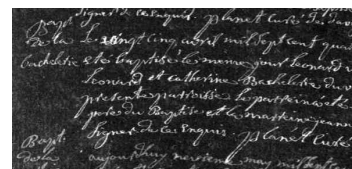 signer de ce enquis. planet curé de
Bapt. de la Le vingt cinq avril mil sept cent
bachelerie a été baptisé le meme jour leonard
leonard et catherine Bachelerie du
presente parroisse le parrein a été
pere du Baptisé et la marreine jeanne
signer de ce Enquis. planet curé
Bapt.
de la aujourdhuy neuvieme may mil sept